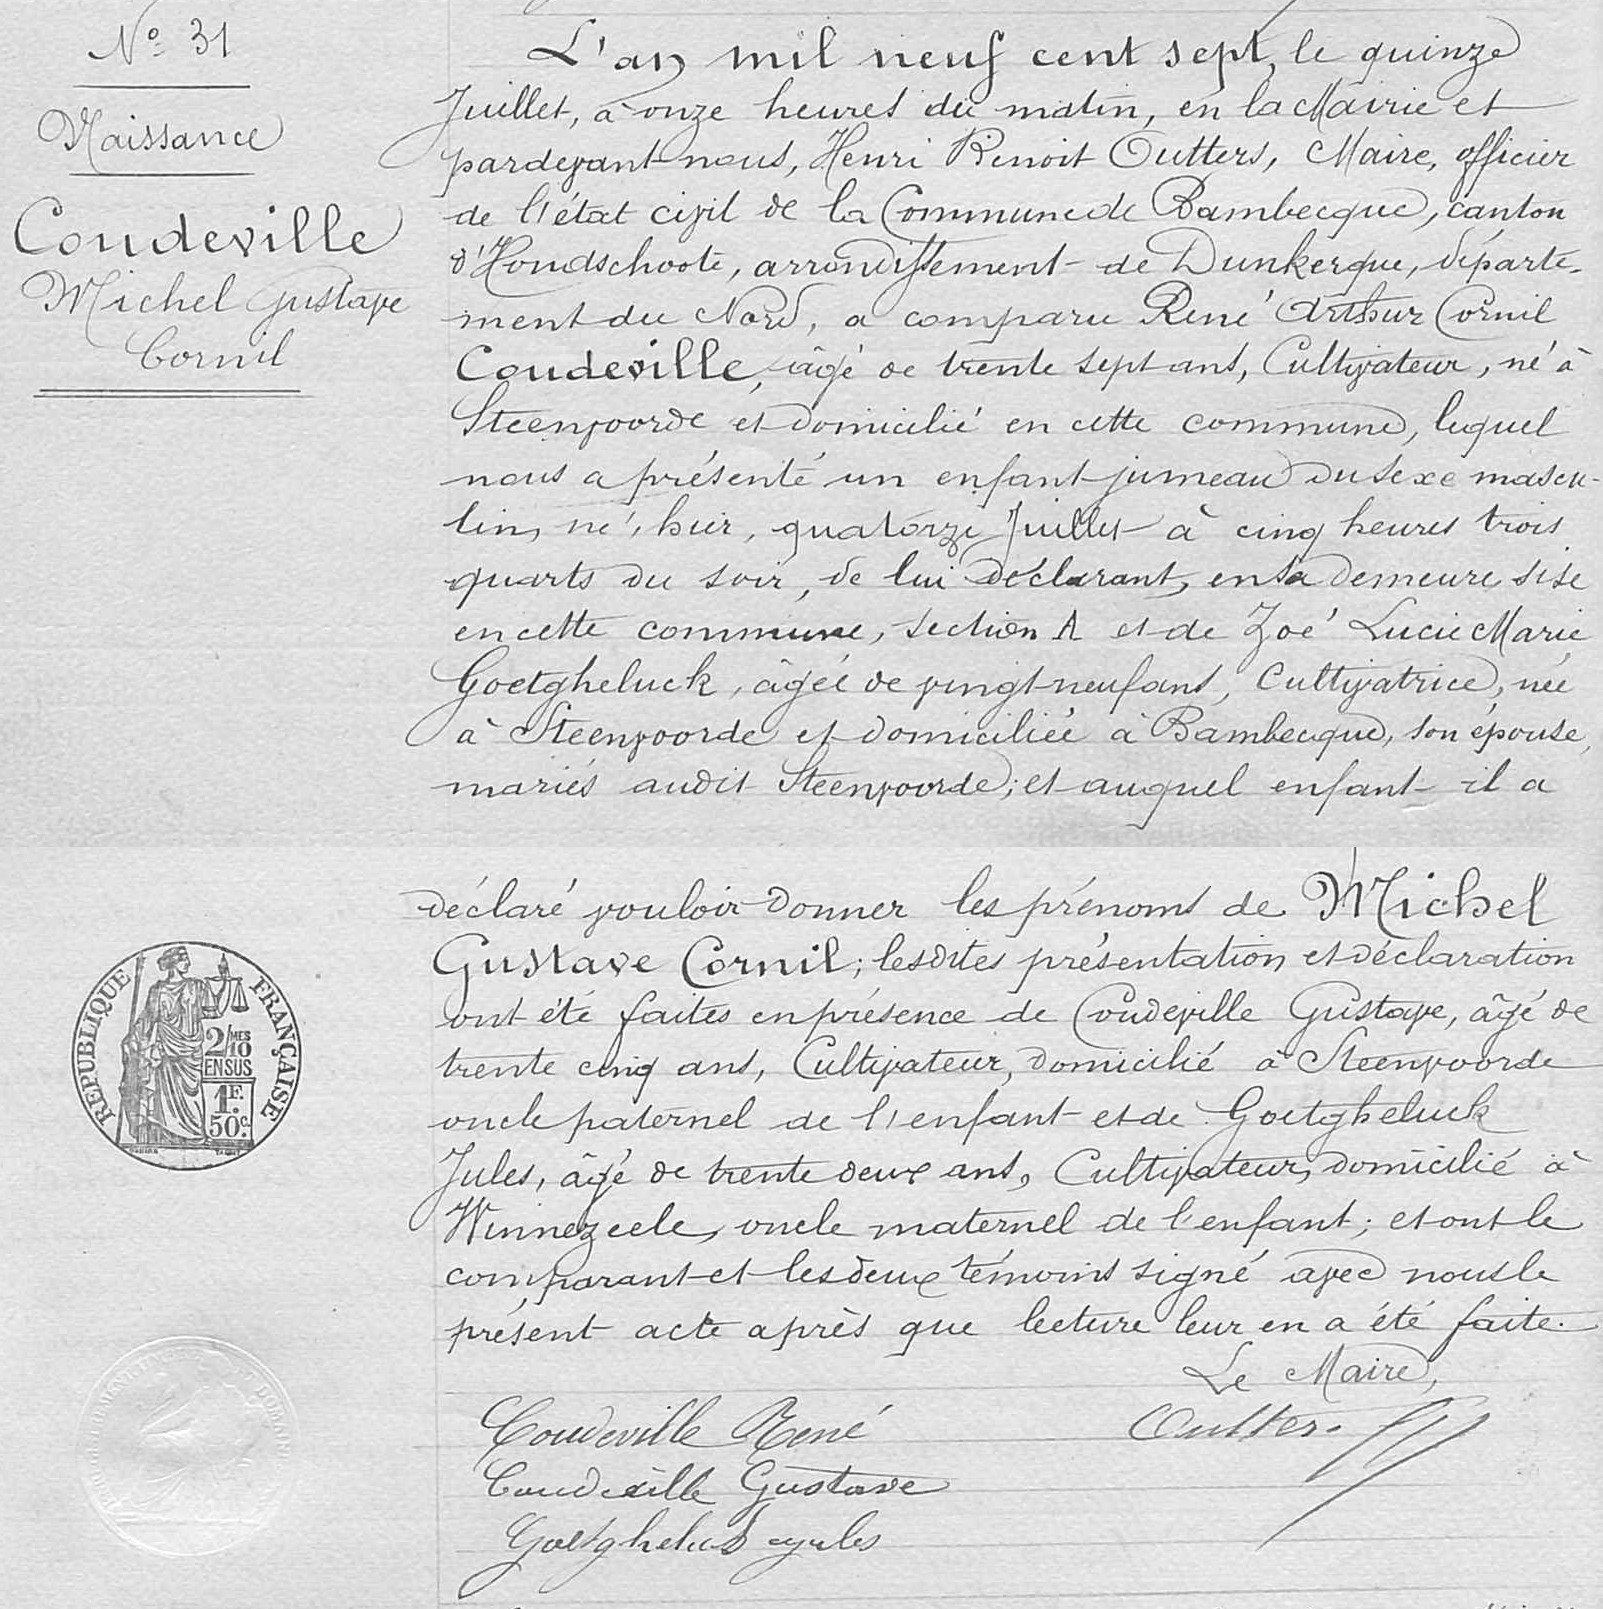 N° 31
Naissance
Coudeville
Michel Gustave
Cornil
L'an mil neuf cent sept, le quinze
Juillet, à onze heures du matin, en la Mairie et
pardevant nous, Henri Benoit Outters, Maire, officier
de l'état civil de la Commune de Bambecque, canton
d'Hondschoote, arrondissement de Dunkerque, départe-
ment du Nord, a comparu René Arthur Cornil
Coudeville, âgé de trente sept ans, Cultivateur, né à
Steenvoorde et domicilié en cette commune, lequel
nous a présenté un enfant jumeau du sexe mascu-
lin, né, hier, quatorze Juillet à cinq heures trois
quarts du soir, de lui déclarant, en sa demeure, sise
en cette commune, section A et de Zoé Lucie Marie
Goetgheluck, âgée de vingt-neuf ans, Cultivatrice, née
à Steenvoorde et domiciliée à Bambecque, son épouse,
mariés audit Steenvoorde; et auquel enfant il a
déclaré vouloir donner les prénoms de Michel
Gustave Cornil; lesdites présentation et déclaration
ont été faites en présence de Coudeville Gustave, âgé de
trente cinq ans, Cultivateur, domicilié à Steenvoorde
oncle paternel de l'enfant et de Goetgheluck
Jules, âgé de trente deux ans, Cultivateur, domicilié à
Winnezeele, oncle maternel de l'enfant; et ont le
comparant et les deux témoins signé avec nous le
présent acte après que lecture leur en a été faite.
Le Maire,
Coudeville René
Outters
Coudeville Gustave
Goetgheluck Jules
RÉPUBLIQUE FRANÇAISE
2/10 MES
EN SUS
1F.
50c.